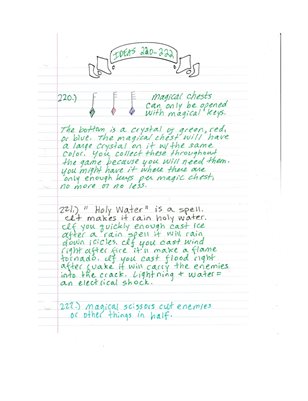 IDEAS 220-222
220.) magical chests
can only be opened
with magical keys.
The bottom is a crystal of green, red,
or blue. The magical chest will have
a large crystal on it w/the same
color. You collect these throughout
the game because you will need them.
You might have it where there are
only enough keys per magic chest,
no more or no less.
221.) "Holy Water" is a spell.
It makes it rain holy water.
If you quickly enough cast ice
after a rain spell it will rain
down icicles. If you cast wind
right after fire it'll make a flame
tornado. If you cast flood right
after quake it will carry the enemies
into the crack. Lightning + water =
an electrical shock.
222.) magical scissors cut enemies
or other things in half.